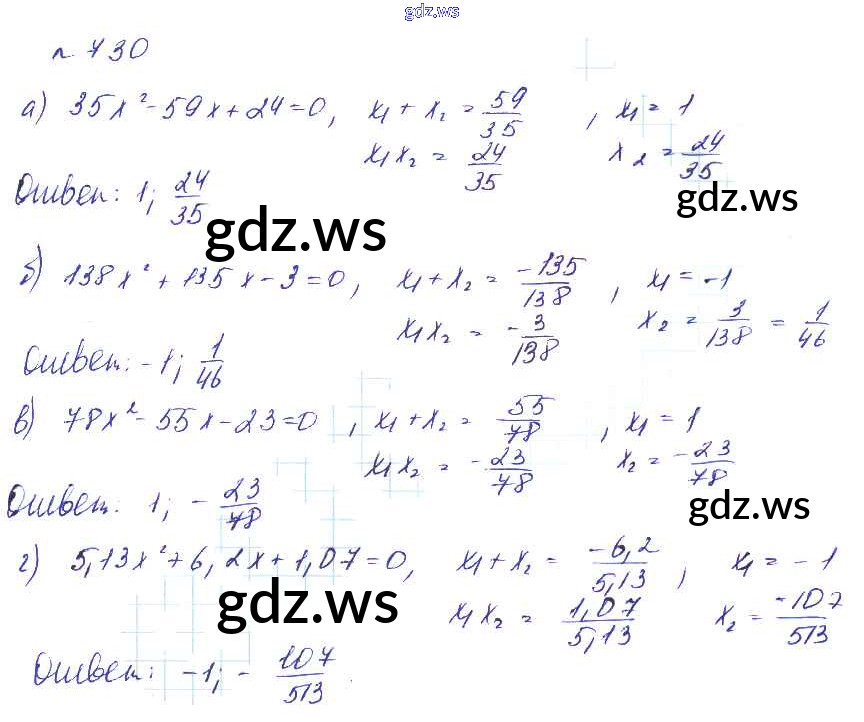 gdz.ws
n 730
а) 35x² - 59x + 24 = 0, x₁ + x₂ = 59/35, x₁ = 1
x₁x₂ = 24/35 x₂ = 24/35
Ответ: 1; 24/35
gdz.ws
gdz.ws
б) 138x² + 135x - 3 = 0, x₁ + x₂ = -135/138, x₁ = -1
x₁x₂ = -3/138 x₂ = 3/138 = 1/46
Ответ: -1; 1/46
в) 78x² - 55x - 23 = 0, x₁ + x₂ = 55/78, x₁ = 1
x₁x₂ = -23/78 x₂ = -23/78
Ответ: 1; -23/78
gdz.ws
г) 5,13x² + 6,2x + 1,07 = 0, x₁ + x₂ = -6,2/5,13, x₁ = -1
x₁x₂ = 1,07/5,13 x₂ = -107/513
gdz.ws
Ответ: -1; -107/513.